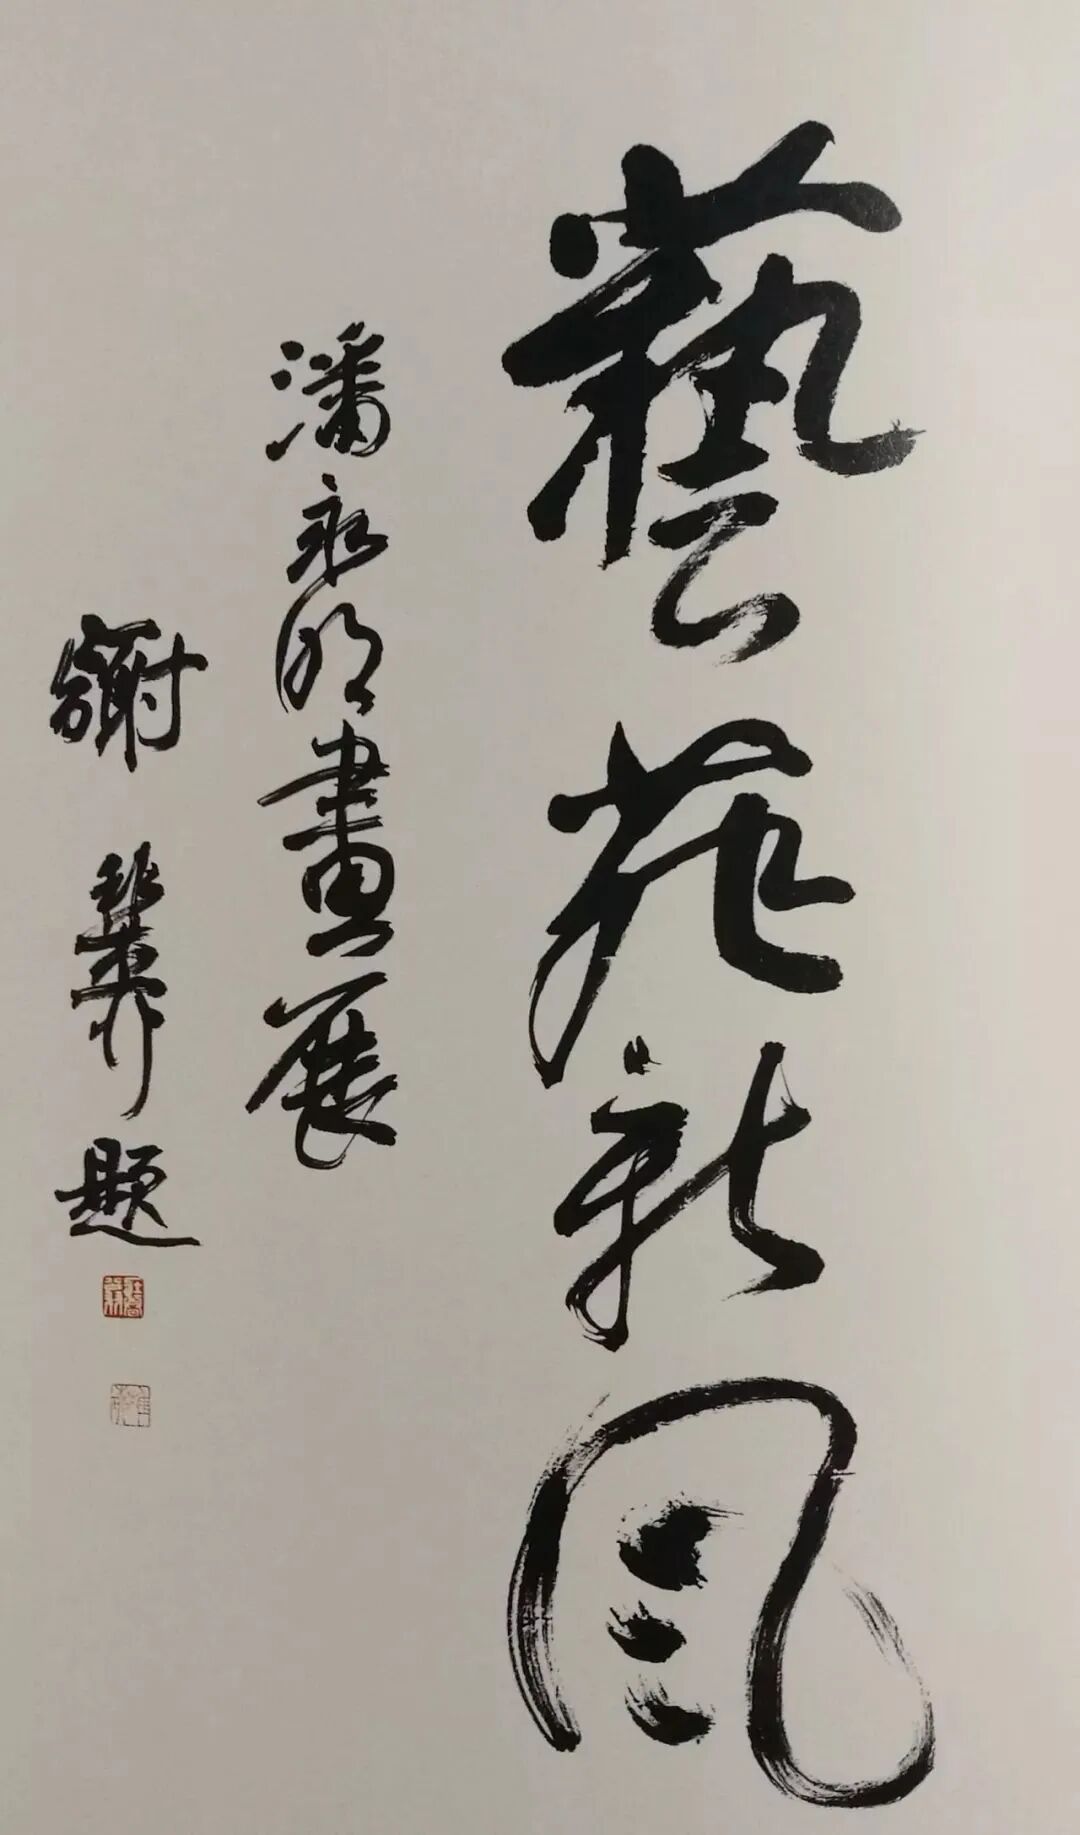 藝苑新風
潘永明畫展
謝 題